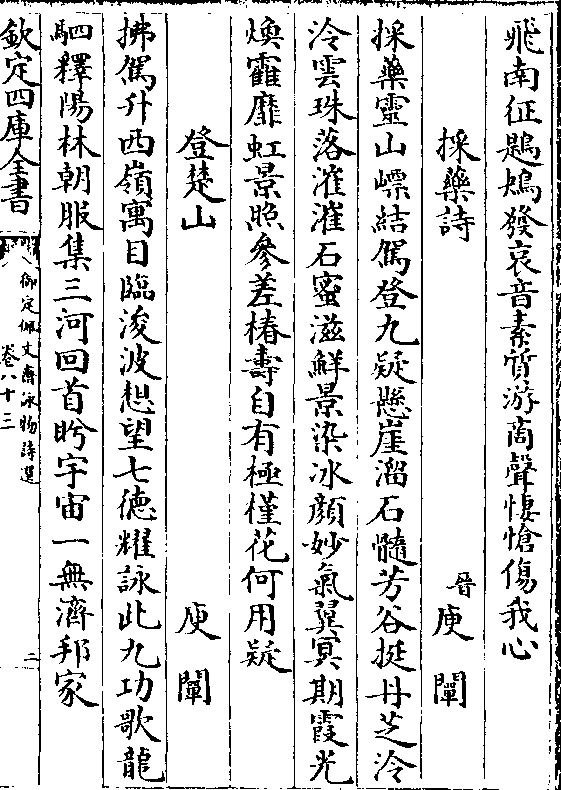 飛南征鶗鴂發哀音素質游商聲悽愴傷我心
採藥詩　晉庾闡
採藥靈山嶛結駕登九疑懸崖溜石髓芳谷挺丹芝泠
泠雲珠落漼漼石蜜滋鮮景染冰顏妙氣翼冥期霞光
煥霍靡虹景照參差椿壽自有極槿花何用疑
登楚山　庾闡
拂駕升西嶺寓目臨浚波想望七德耀詠此九功歌龍
駟釋陽林朝服集三河回首盻宇宙一無濟邦家
欽定四庫全書
御定佩文齋詠物詩選
卷八十三
二